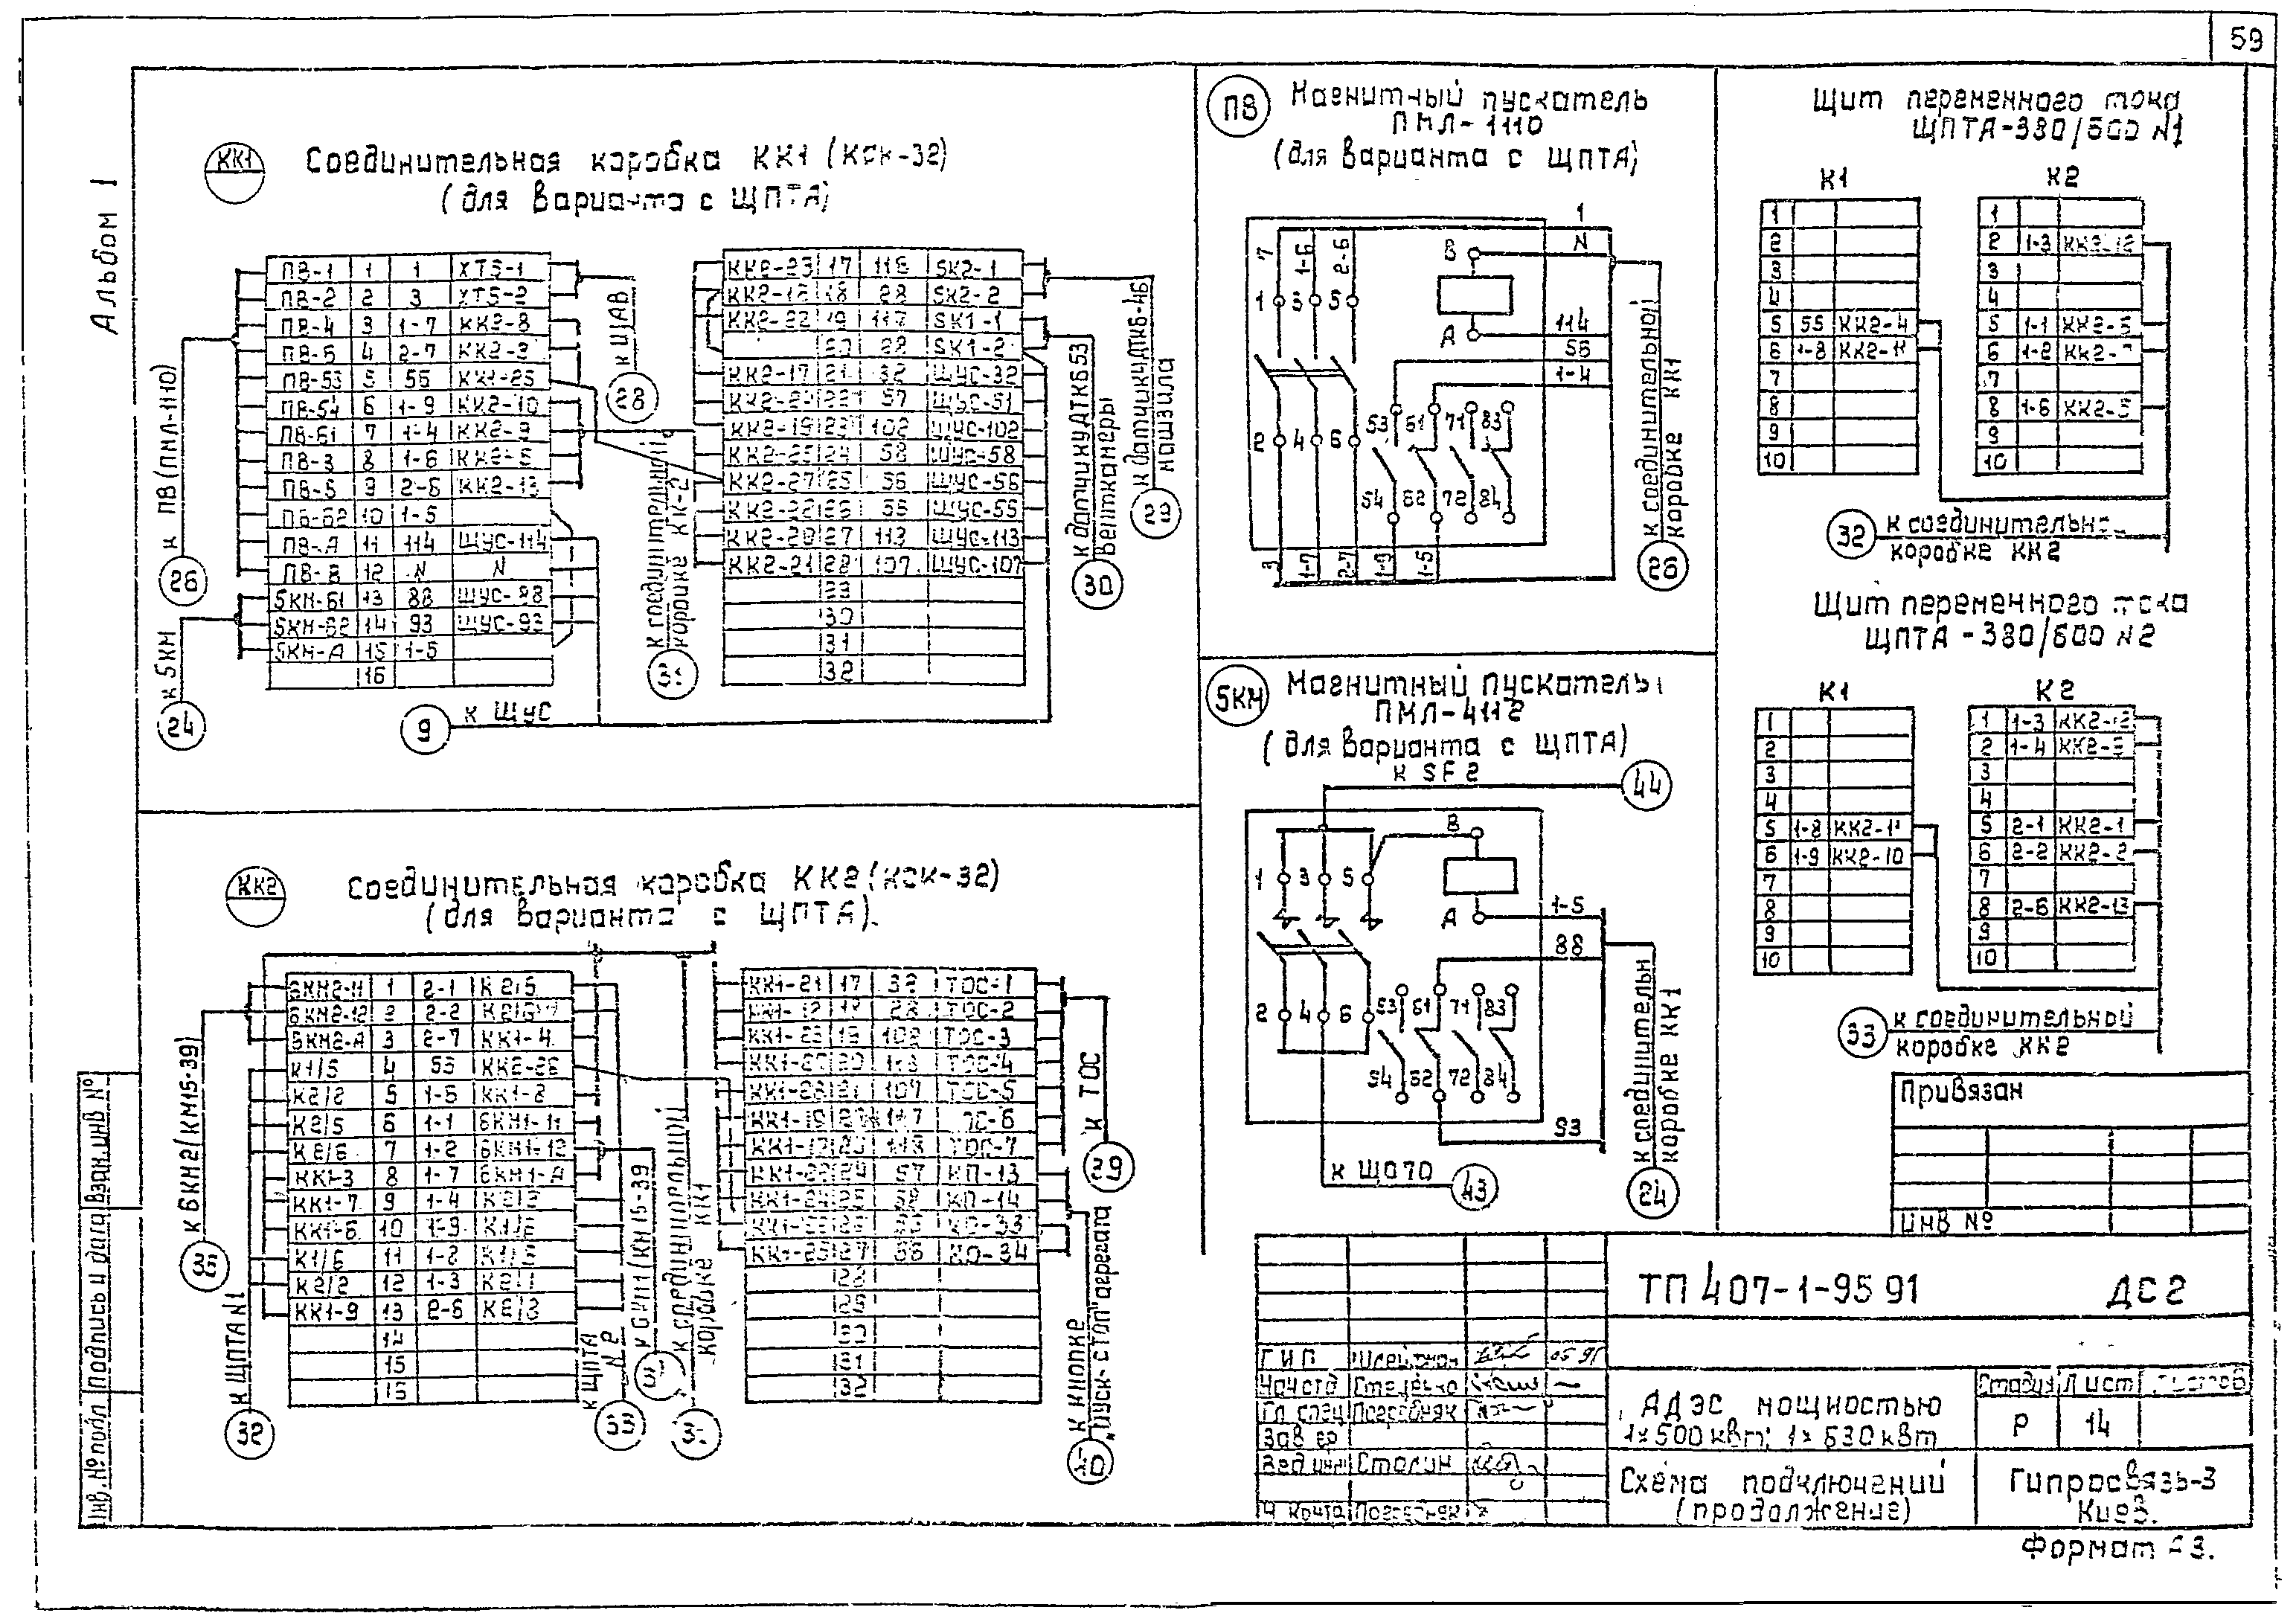 59
Альбом 1
КК1
Соединительная коробка КК1 (КСК-32)
(для варианта с ЩПТА)
ПВ-1 1 1 ХТ5-1
ПВ-2 2 3 ХТ5-2
ПВ-4 3 1-7 КК2-8
ПВ-6 4 2-7 КК2-3
ПВ-53 5 56 КК1-25
ПВ-54 6 1-9 КК2-10
ПВ-61 7 1-4 КК2-9
ПВ-3 8 1-6 КК2-5
ПВ-5 9 2-6 КК2-13
ПВ-62 10 1-5
ПВ-А 11 114 ЩУС-114
ПВ-В 12 N N
5КМ-61 13 88 ЩУС-88
5КМ-62 14 93 ЩУС-93
5КМ-А 15 1-5
16
к ПВ (ПМЛ-1110)
26
к 5КМ
24
к ЩАВ
28
9
к ЩУС
КК2-23 17 118 SK2-1
КК2-18 18 28 SK2-2
КК2-22 19 117 SK1-1
20 28 SK1-2
КК2-17 21 32 ЩУС-32
КК2-24 22 57 ЩУС-51
КК2-19 23 102 ЩУС-102
КК2-25 24 58 ЩУС-58
КК2-27 25 56 ЩУС-56
26 55 ЩУС-55
КК2-20 27 113 ЩУС-113
КК2-21 28 107 ЩУС-107
29
30
31
32
к соединительной
коробке КК-2
31
к датчику ДТКБ53
венткамеры
30
к датчику ДТКБ-46
машзала
29
ПВ
Магнитный пускатель
ПМЛ-1110
(для варианта с ЩПТА)
1
N
7 1-6 2-6
В
1 3 5
А
114
56
1-4
53 61 71 83
2 4 6
54 62 72 84
3 1-7 2-7 1-9 1-5
к соединительной
коробке КК1
26
5КМ
Магнитный пускатель
ПМЛ-4112
(для варианта с ЩПТА)
к SF2
44
В
1 3 5
А
1-5
88
2 4 6
53 61 71 83
54 62 72 84
93
к ЩО70
43
к соединительн
коробке КК1
24
Щит переменного тока
ЩПТА-380/600 N1
К1
1
2
3
4
5 55 КК2-4
6 1-8 КК2-11
7
8
9
10
К2
1
2 1-3 КК2-12
3
4
5 1-1 КК2-6
6 1-2 КК2-7
7
8 1-6 КК2-5
9
10
32
к соединительно
коробке КК2
Щит переменного тока
ЩПТА-380/600 N2
К1
1
2
3
4
5 1-8 КК2-11
6 1-9 КК2-10
7
8
9
10
К2
1 1-3 КК2-12
2 1-4 КК2-9
3
4
5 2-1 КК2-1
6 2-2 КК2-2
7
8 2-6 КК2-13
9
10
33
к соединительной
коробке КК2
КК2
Соединительная коробка КК2 (КСК-32)
(для варианта с ЩПТА).
6КМ2-11 1 2-1 К2/5
6КМ2-12 2 2-2
6КМ2-А 3 2-7 КК1-4
К1/5 4 55 КК2-26
К2/2 5 1-6 КК1-8
К2/5 6 1-1 6КМ1-11
К2/6 7 1-2 6КМ1-12
КК1-3 8 1-7 6КМ1-А
КК1-7 9 1-4 К2/2
КК1-6 10 1-9 К1/6
К1/6 11 1-8
К2/2 12 1-3 К2/1
КК1-9 13 2-6 К2/8
14
15
16
к 6КМ2 (КМ15-39)
к ЩПТА N1
32
к ЩПТА
N 2
33
(КМ15-39
коробке КК1
КК1-21 17 32 ТОС-1
18 28 ТОС-2
КК1-23 19 102 ТОС-3
20 ТОС-4
КК1-28 21 107 ТОС-5
КК1-19 117
ТОС-7
КК1-22 24 57 КП-13
КК1-24 25 58 КП-14
КК1-25 27 56 КО-34
28
29
30
31
32
к ТОС
39
к кнопке
„пуск-стоп" агрегата
Привязан
Инв №
ТП 407-1-95 91 ДС2
ГИП 05 91
Нач отд
Гл спец Погребняк
Зав гр
Вед инж Столин
Н контр Погребняк
АДЭС мощностью
1х500 квт; 1х630 квт
Стадия Лист Листов
Р 14
Схема подключений
(продолжение)
Гипросвязь-3
Киев.
Формат А3.
Инв. № подл Подпись и дата Взам.инв №